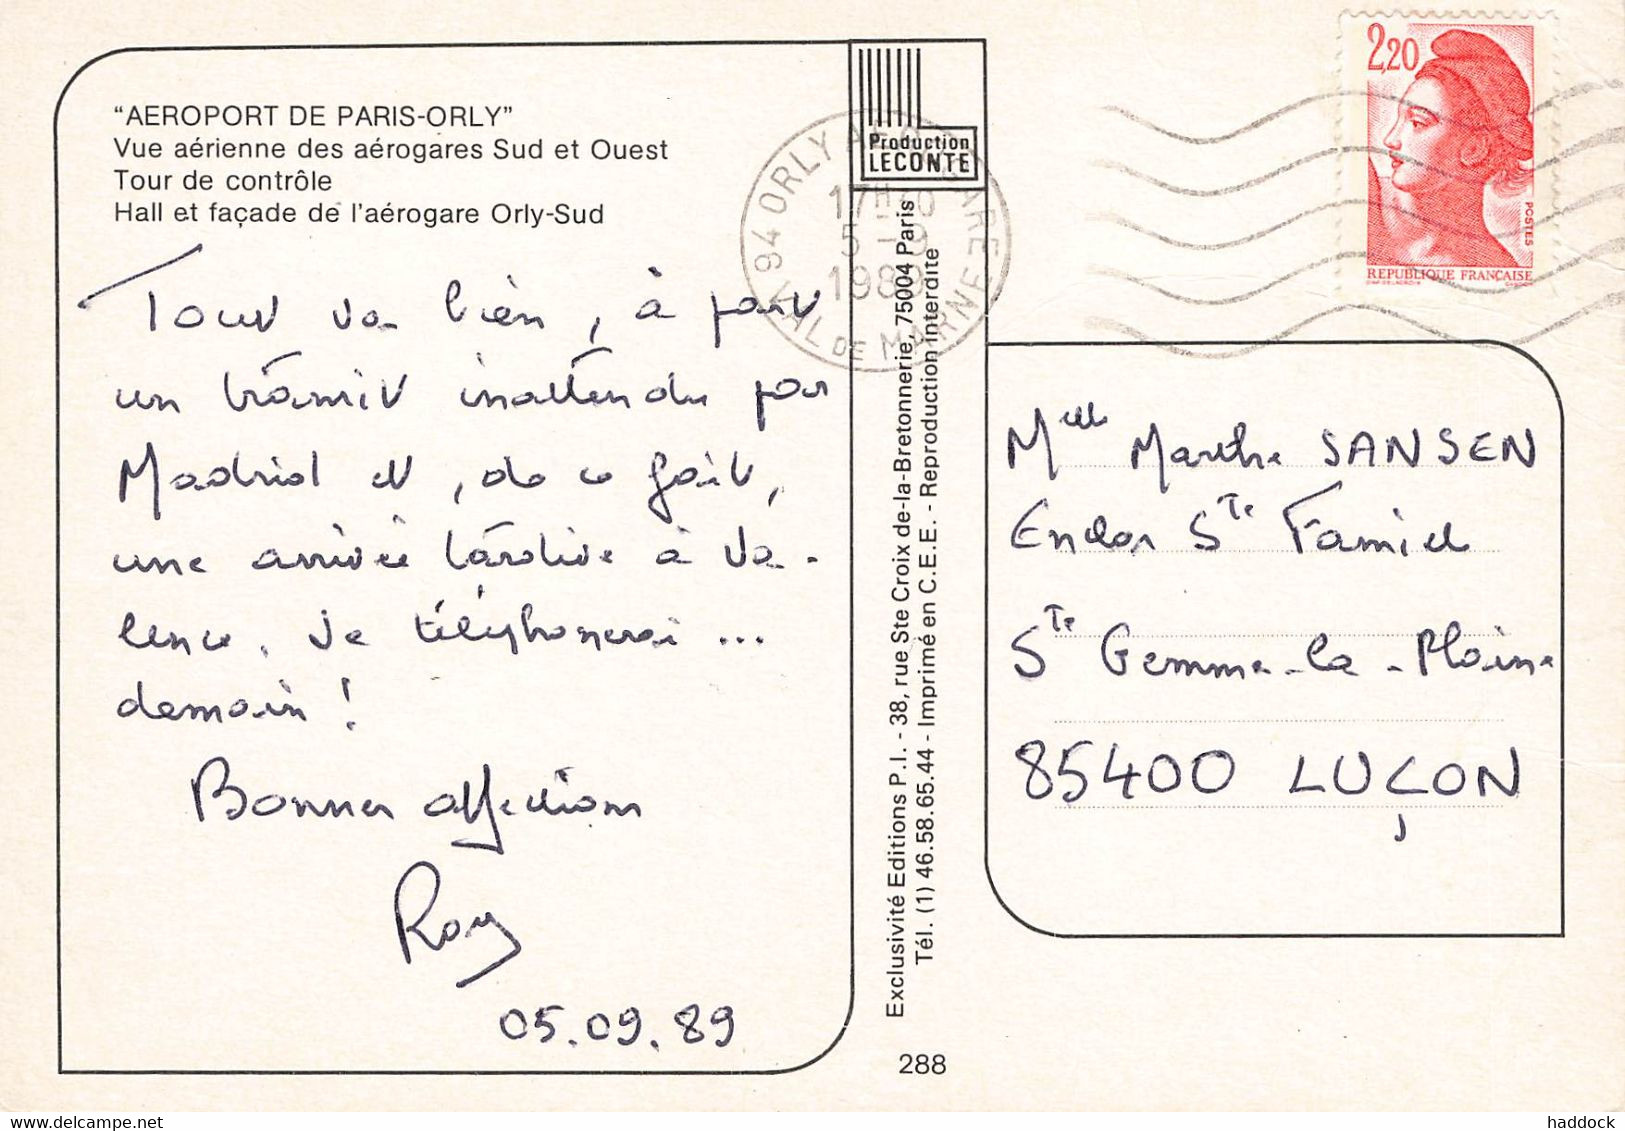 "AEROPORT DE PARIS-ORLY"
Vue aérienne des aérogares Sud et Ouest
Tour de contrôle
Hall et façade de l'aérogare Orly-Sud
Tout va bien, à part
un transit inattendu par
Madrid et, de ce fait,
une arrivée tardive à Va-
lence. Je téléphonerai ...
demain !
Bonnes affections
05.09.89
Production
LECONTE
94 ORLY AEROGARE
17H
5 - 9
1989
VAL DE MARNE
Exclusivité Editions P.I. - 38, rue Ste Croix de-la-Bretonnerie, 75004 Paris
Tél. (1) 46.58.65.44 - Imprimé en C.E.E. - Reproduction interdite
288
2,20
POSTES
REPUBLIQUE FRANÇAISE
Mlle Marthe SANSEN
Ste Famille
Ste Gemme-la-Plaine
85400 LUÇON
haddock